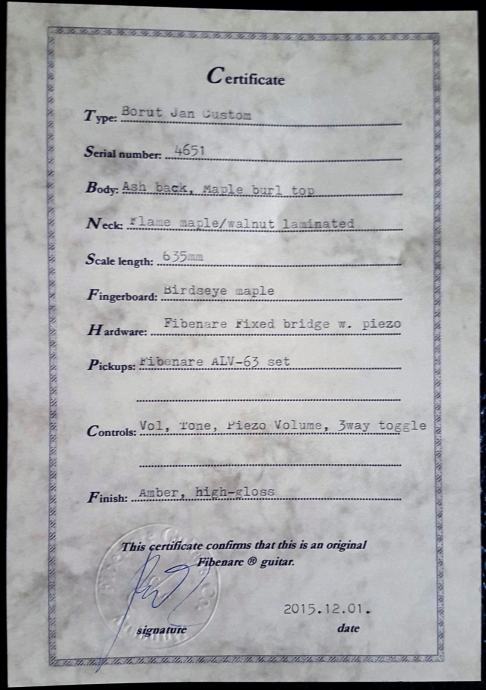 Certificate
Type: Borut Jan Custom
Serial number: 4651
Body: Ash back, Maple burl top
Neck: Flame maple/walnut laminated
Scale length: 635mm
Fingerboard: Birdseye maple
Hardware: Fibenare Fixed bridge w. piezo
Pickups: Fibenare ALV-63 set
Controls: Vol, Tone, Piezo Volume, 3way toggle
Finish: Amber, high-gloss
This certificate confirms that this is an original
Fibenare ® guitar.
2015.12.01.
signature date